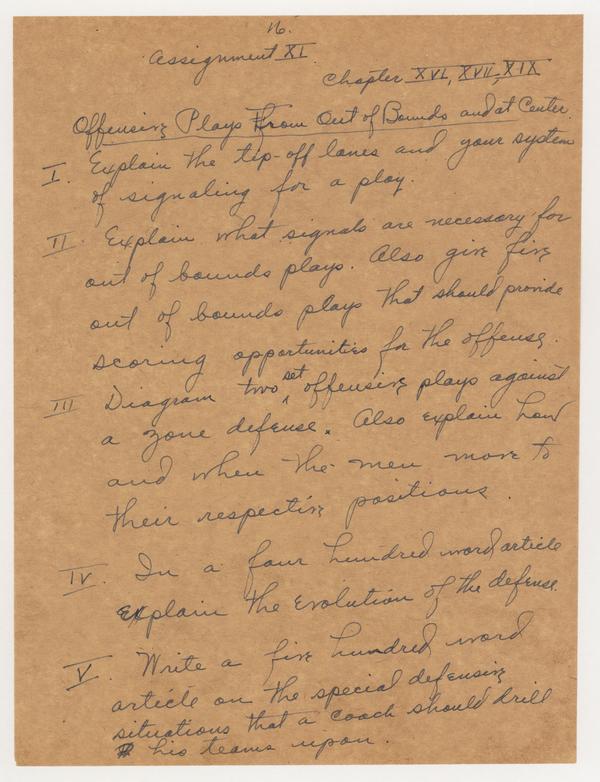 16.
Assignment XI
Chapter XVI, XVII, XIX
Offensive Plays From Out of Bounds and at Center.
I. Explain the tip-off lanes and your system
of signaling for a play.
II. Explain what signals are necessary for
out of bounds plays. Also give five
out of bounds plays that should provide
scoring opportunities for the offense.
III Diagram two set offensive plays against
a zone defense. Also explain how
and when the men move to
their respective positions.
IV. In a four hundred word article
explain the evolution of the defense.
V. Write a five hundred word
article on the special defensive
situations that a coach should drill
his teams upon.